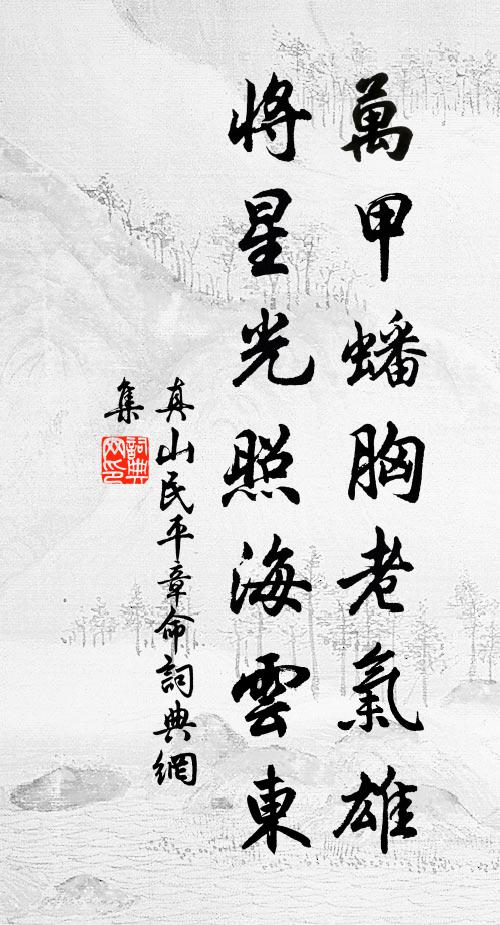 萬甲蟠胸老氣雄
將星光照海雲東
真山民平章命詞典網
集
詞典
网印